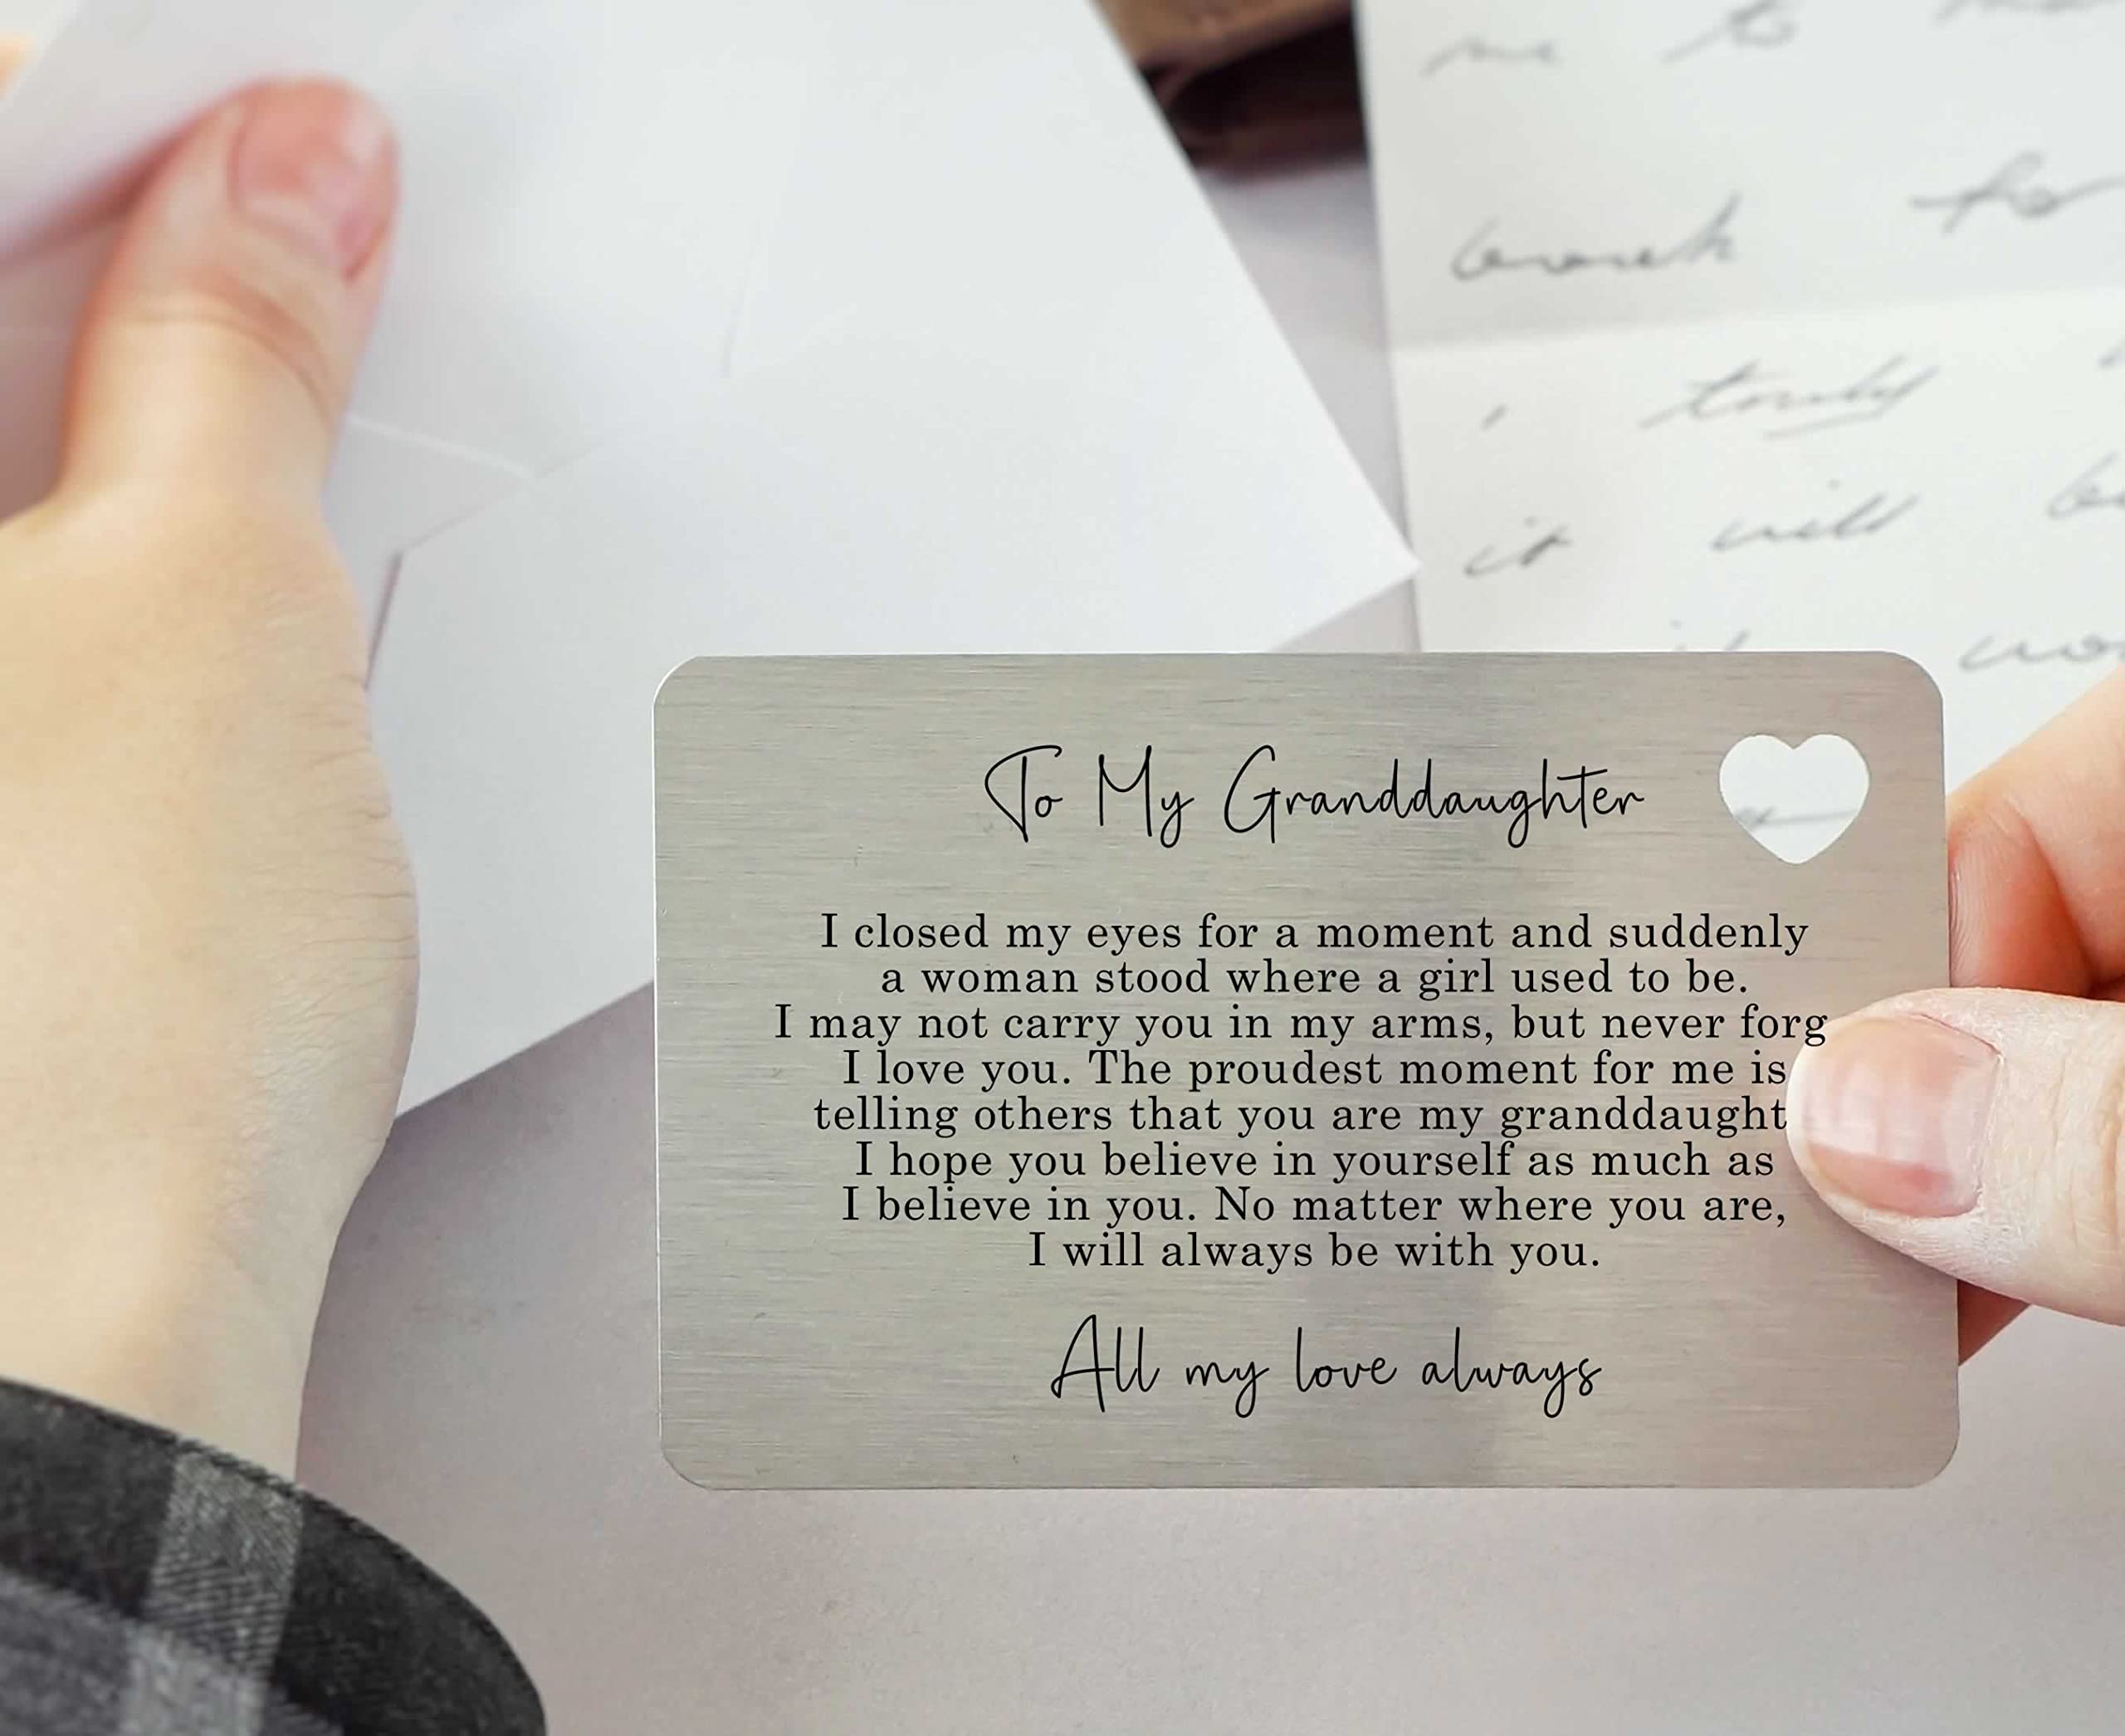 me to
work for
, truly
it will be
To My Granddaughter
I closed my eyes for a moment and suddenly
a woman stood where a girl used to be.
I may not carry you in my arms, but never forg
I love you. The proudest moment for me is
telling others that you are my granddaught
I hope you believe in yourself as much as
I believe in you. No matter where you are,
I will always be with you.
All my love always